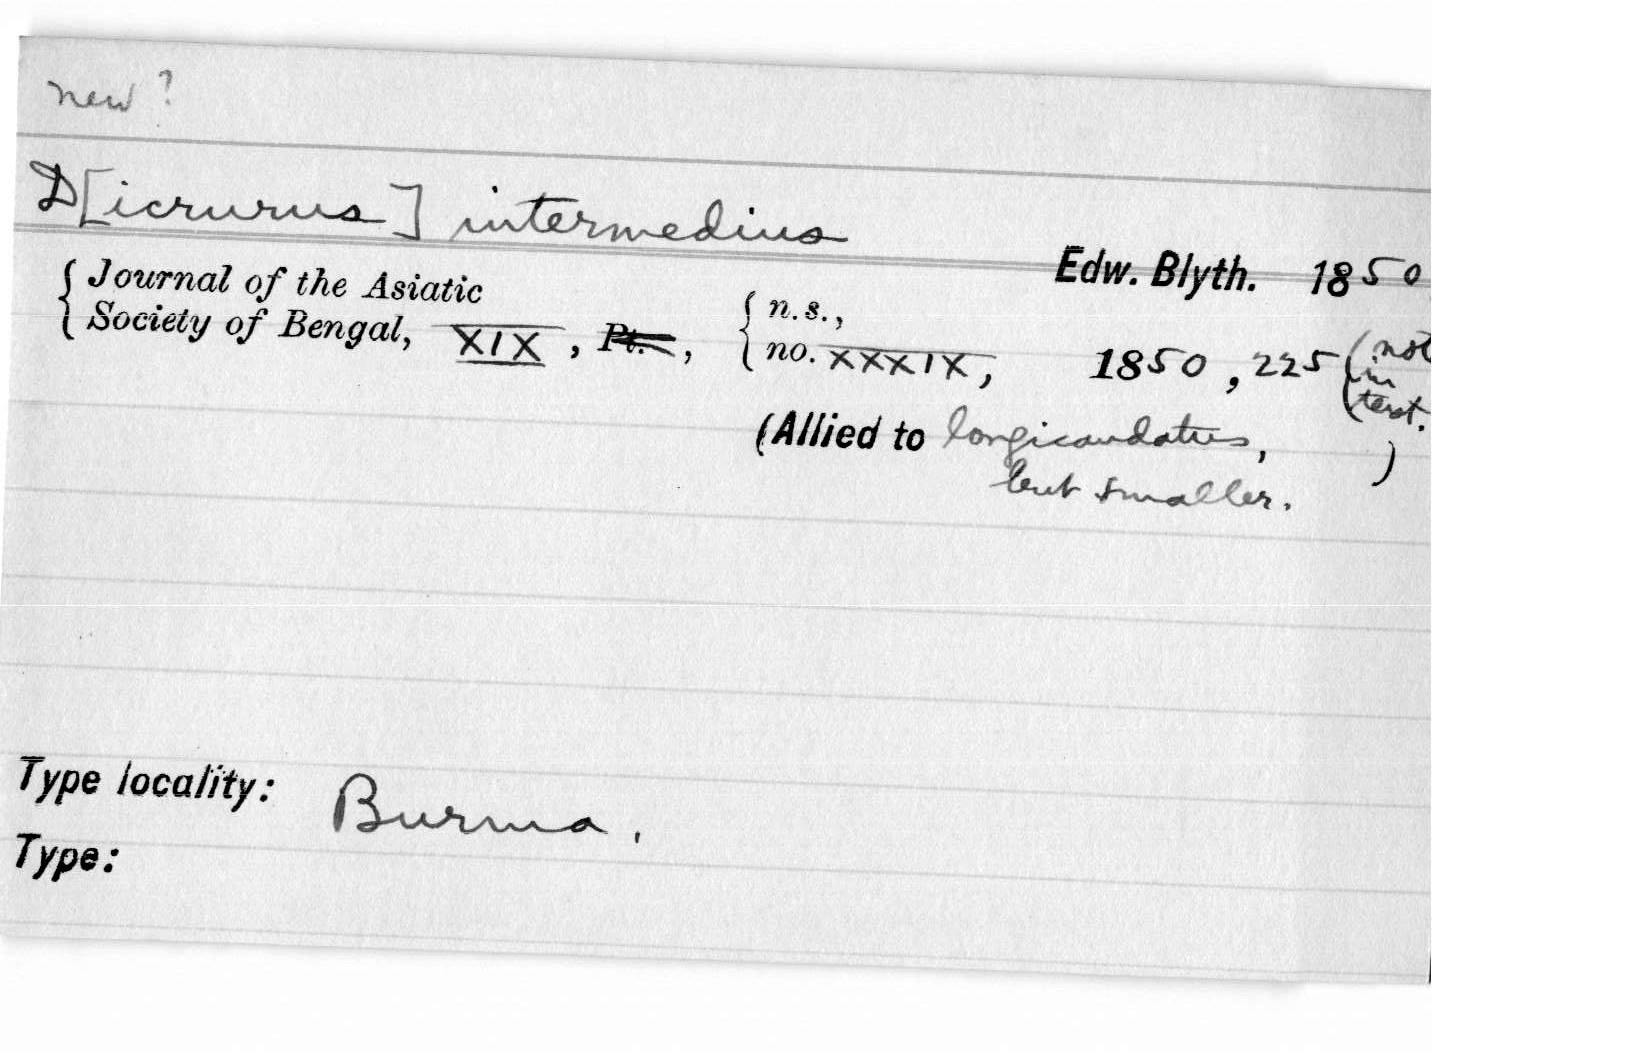 new ?
D[icrurus] intermedius
Edw. Blyth. 1850
{ Journal of the Asiatic
Society of Bengal, XIX, Pt., { n.s.,
no. XXXIX, 1850, 225 (not
in
text.
(Allied to longicaudatus, )
but smaller.
Type locality: Burma.
Type: